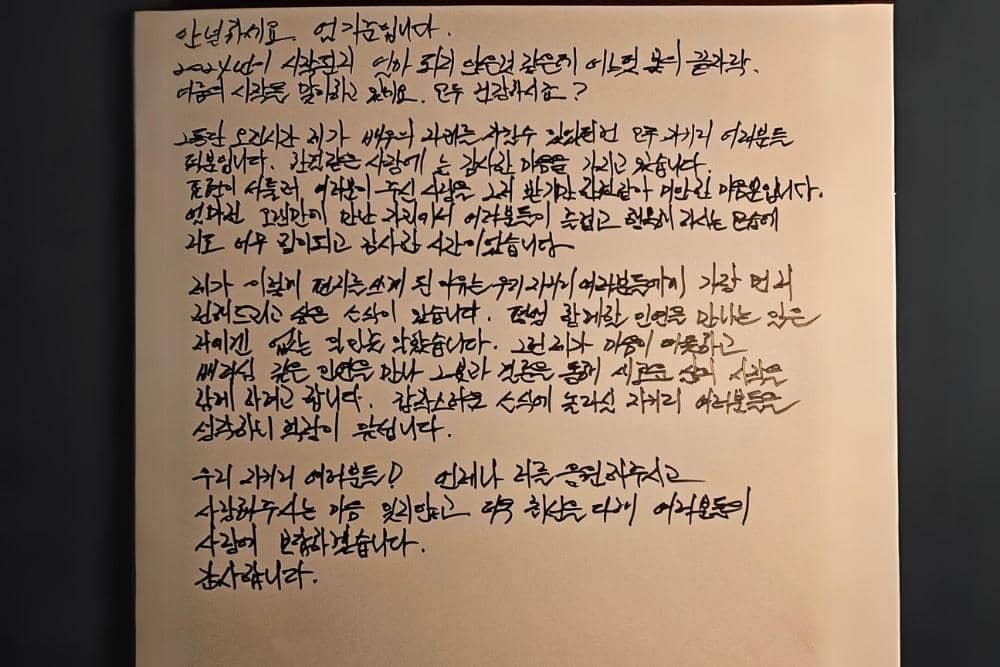 안녕하세요. 엄기준입니다.
2024년이 시작된지 얼마 되지 않은것 같은데 어느덧 봄의 끝자락,
여름의 시작을 맞이하고 있네요. 모두 건강하시죠?
그동안 오랜시간 제가 배우의 자리를 지킬수 있었던건 모두 자기리 여러분들
덕분입니다. 한결같은 사랑에 늘 감사한 마음을 가지고 있습니다.
표현이 서툴러 여러분이 주신 사랑을 그저 받기만 한것같아 미안한 마음뿐입니다.
얼마전 오랜만에 만난 자리에서 여러분들이 즐겁고 행복해 하시는 모습에
저도 너무 힘이되고 감사한 시간이었습니다.
제가 이렇게 편지를 쓰게 된 이유는 우리 자기리 여러분들에게 가장 먼저
전해드리고 싶은 소식이 있습니다. 평생 함께할 인연을 만나는 일은
저에겐 없는 일인듯 했습니다. 그런 제가 마음이 따뜻하고
배려심 깊은 인연을 만나 그분과 결혼을 통해 새로운 삶의 시작을
함께 하려고 합니다. 갑작스러운 소식에 놀라실 자기리 여러분들을
생각하니 떨립니다.
우리 자기리 여러분들! 언제나 저를 응원해주시고
사랑해주시는 마음 잊지않고 더욱 최선을 다해 여러분들의
사랑에 보답하겠습니다.
감사합니다.